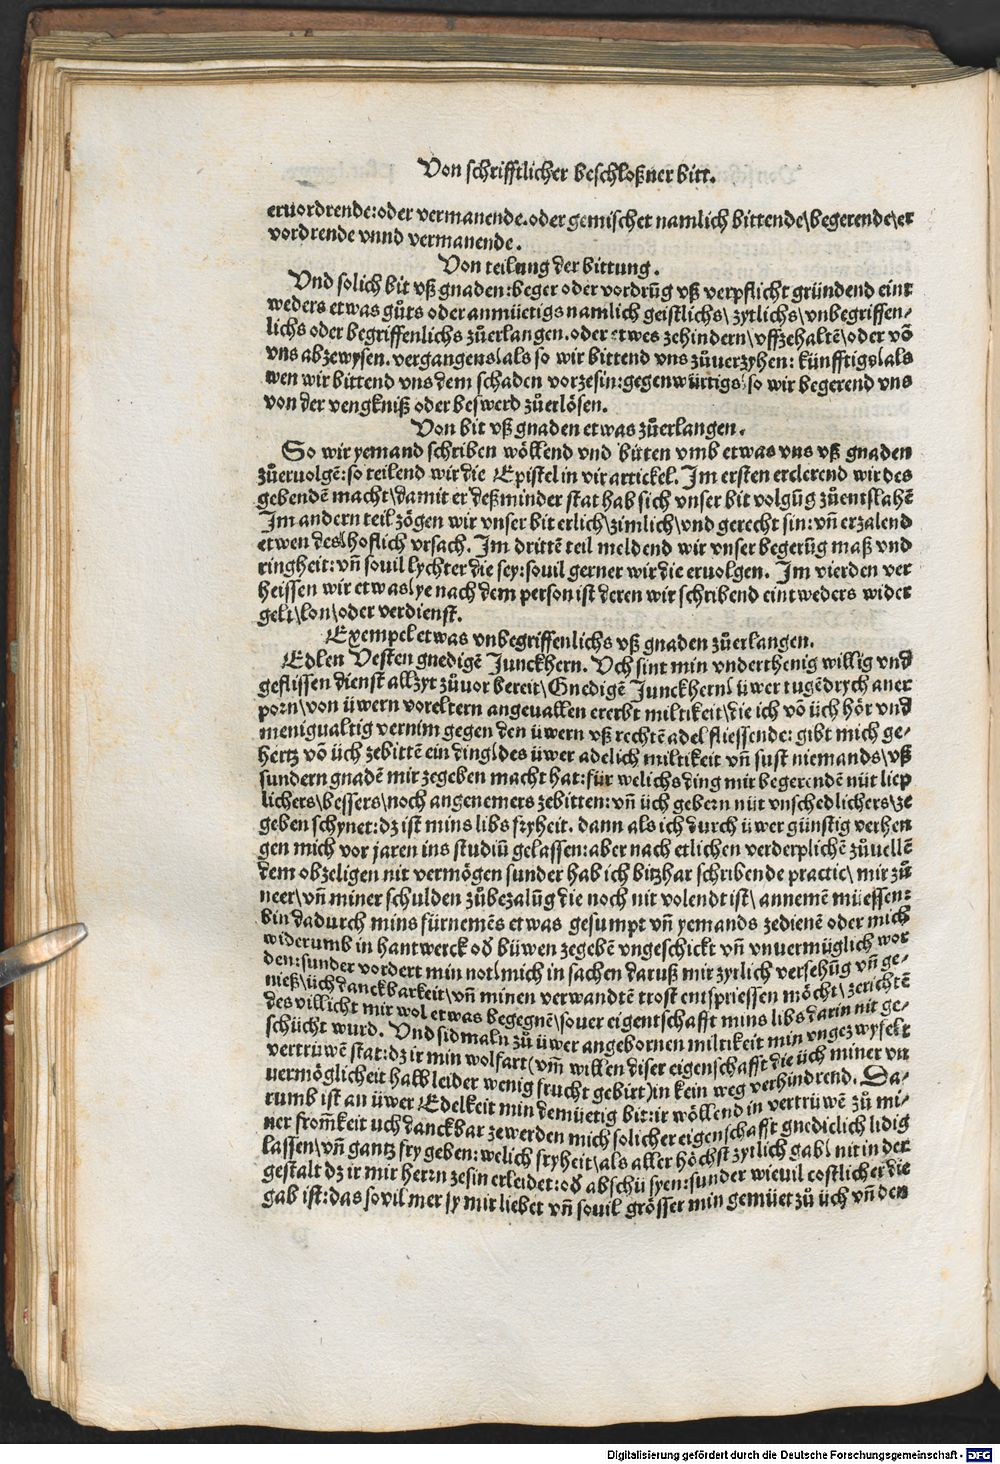 Von schrifftlicher beschloßner bitt.
eruordrende: oder vermanende. oder gemischet namlich bittende\ begerende\ er
vordrende vnnd vermanende.
Von teilung der bittung.
Vnd solich bit vß gnaden: beger oder vordrūg vß verpflicht gründend eint
weders etwas gůts oder anmüetigs namlich geistlichs\ zytlichs\ vnbegriffen⸗
lichs oder begriffenlichs zůerlangen. oder etwes zehindern\ vffzehaltē\ oder vō
vns abzewysen. vergangens\ als so wir bittend vns zůuerzyhen: künfftigs\ als
wen wir bittend vns dem schaden vorzesin: gegenwürtigs\ so wir begerend vns
von der vengkniß oder beswerd zůerlösen.
Von bit vß gnaden etwas zůerlangen.
So wir yemand schriben wöllend vnd bitten vmb etwas vns vß gnaden
zůeruolgē: so teilend wir die Epistel in vir artickel. Im ersten erclerend wir des
gebendē macht\ damit er deßminder stat hab sich vnser bit volgūg zůentslahē
Im andern teil zögen wir vnser bit erlich\ zimlich\ vnd gerecht sin: vn̄ erzalend
etwen des\ hoflich vrsach. Im drittē teil meldend wir vnser begerūg maß vnd
ringheit: vn̄ souil lychter die sey: souil gerner wir die eruolgen. Im vierden ver
heissen wir etwas\ ye nach dem person ist deren wir schribend eintweders wider
gelt\ lon\ oder verdienst.
Exempel etwas vnbegriffenlichs vß gnaden zůerlangen.
Edlen Vesten gnedigē Junckhern. Vch sint min vnderthenig willig vnd
geflissen dienst allzyt zůuor bereit\ Gnedigē Junckhern\ üwer tugēdrych aner
porn\ von üwern voreltern angeuallen ererbt miltikeit\ die ich vō üch hör vnd
menigualtig vernim gegen den üwern vß rechtē adel fliessende: gibt mich ge⸗
hertz vō üch zebittē ein ding\ des üwer adelich miltikeit vn̄ sust niemands\ vß
sundern gnadē mir zegeben macht hat: für welichs ding mir begerendē nüt liep
lichers\ bessers\ noch angenemers zebitten: vn̄ üch gebern nüt vnschedlichers\ ze
geben schynet: dz ist mins libs fryheit. dann als ich durch üwer günstig verhen
gen mich vor jaren ins studiū gelassen: aber nach etlichen verderplichē zůuellē
dem obzeligen nit vermögen sunder hab ich bitzhar schribende practic\ mir zů
neer\ vn̄ miner schulden zůbezalūg die noch nit volendt ist\ annemē müessen:
bin dadurch mins fürnemēs etwas gesumpt vn̄ yemands zedienē oder mich
widerumb in hantwerck od̄ büwen zegebē vngeschickt vn̄ vnuermüglich wor
den: sunder vordert min not\ mich in sachen daruß mir zytlich versehūg vn̄ ge⸗
nieß\ üch danckbarkeit\ vn̄ minen verwandtē trost entspriessen möcht\ zerichtē
des villicht mir wol etwas begegnē\ so uer eigentschafft mins libs darin nit ge⸗
schücht wurd. Vnd sidmaln zů üwer angebornen miltikeit min vngezwyfelt
vertruwē stat: dz ir min wolfart (vm̄ willen diser eigenschafft die üch miner vn
uermöglicheit halb leider wenig frucht gebirt) in kein weg verhindrend. Da⸗
rumb ist an üwer Edelkeit min demüetig bit: ir wöllend in vertrüwē zů mi⸗
ner from̄keit uch danckbar zewerden mich solicher eigenschafft gnediclich lidig
lassen\ vn̄ gantz fry geben: welich fryheit\ als aller höchst zytlich gab\ nit in der
gestalt dz ir mir herrn zesin erleidet: od̄ abschü syen: sunder wieuil costlicher die
gab ist: das souil mer sy mir liebet vn̄ souil grösser min gemüet zů üch vn̄ den
Digitalisierung gefördert durch die Deutsche Forschungsgemeinschaft - DFG